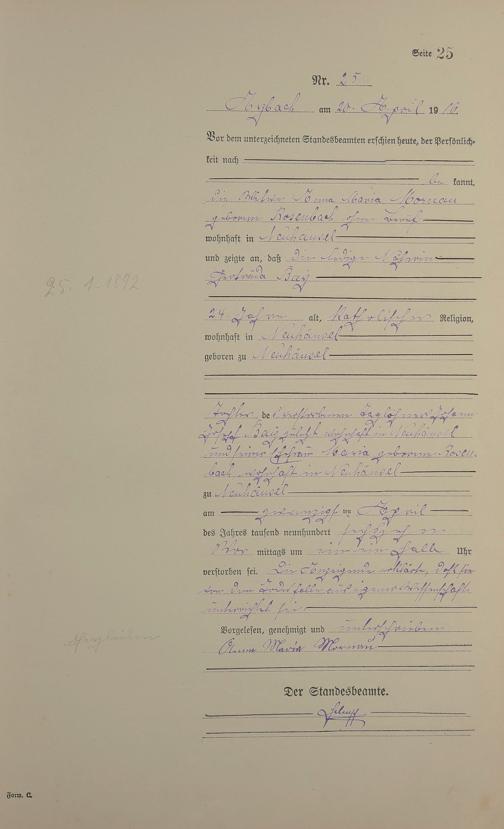 Seite 25
Nr. 25
am 20. April 1916.
Vor dem unterzeichneten Standesbeamten erschien heute, der Persönlich-
keit nach
be kannt,
die Witwe Anna Maria Mornau
geborene Rosenbach ohne Beruf
wohnhaft in Neuhäusel
und zeigte an, daß die ledige Näherin
Gertruda Bay
25. 1. 1892
24 Jahre alt, Katholischer Religion,
wohnhaft in Neuhäusel
geboren zu Neuhäusel
Tochter des verstorbenen Taglöhners Johann
Josef Bay zuletzt wohnhaft in Neuhäusel
und seiner Ehefrau Maria geborene Rosen-
bach wohnhaft in Neuhäusel
zu Neuhäusel
am zwanzigsten April
des Jahres tausend neunhundert sechszehn
Vor mittags um ein ein halb Uhr
verstorben sei. Die Anzeigende erklärte, daß sie
von dem Todesfalle aus eigener Wissenschaft
unterrichtet sei
Vorgelesen, genehmigt und unterschrieben
Anna Maria Mornau
Der Standesbeamte.
Form. C.